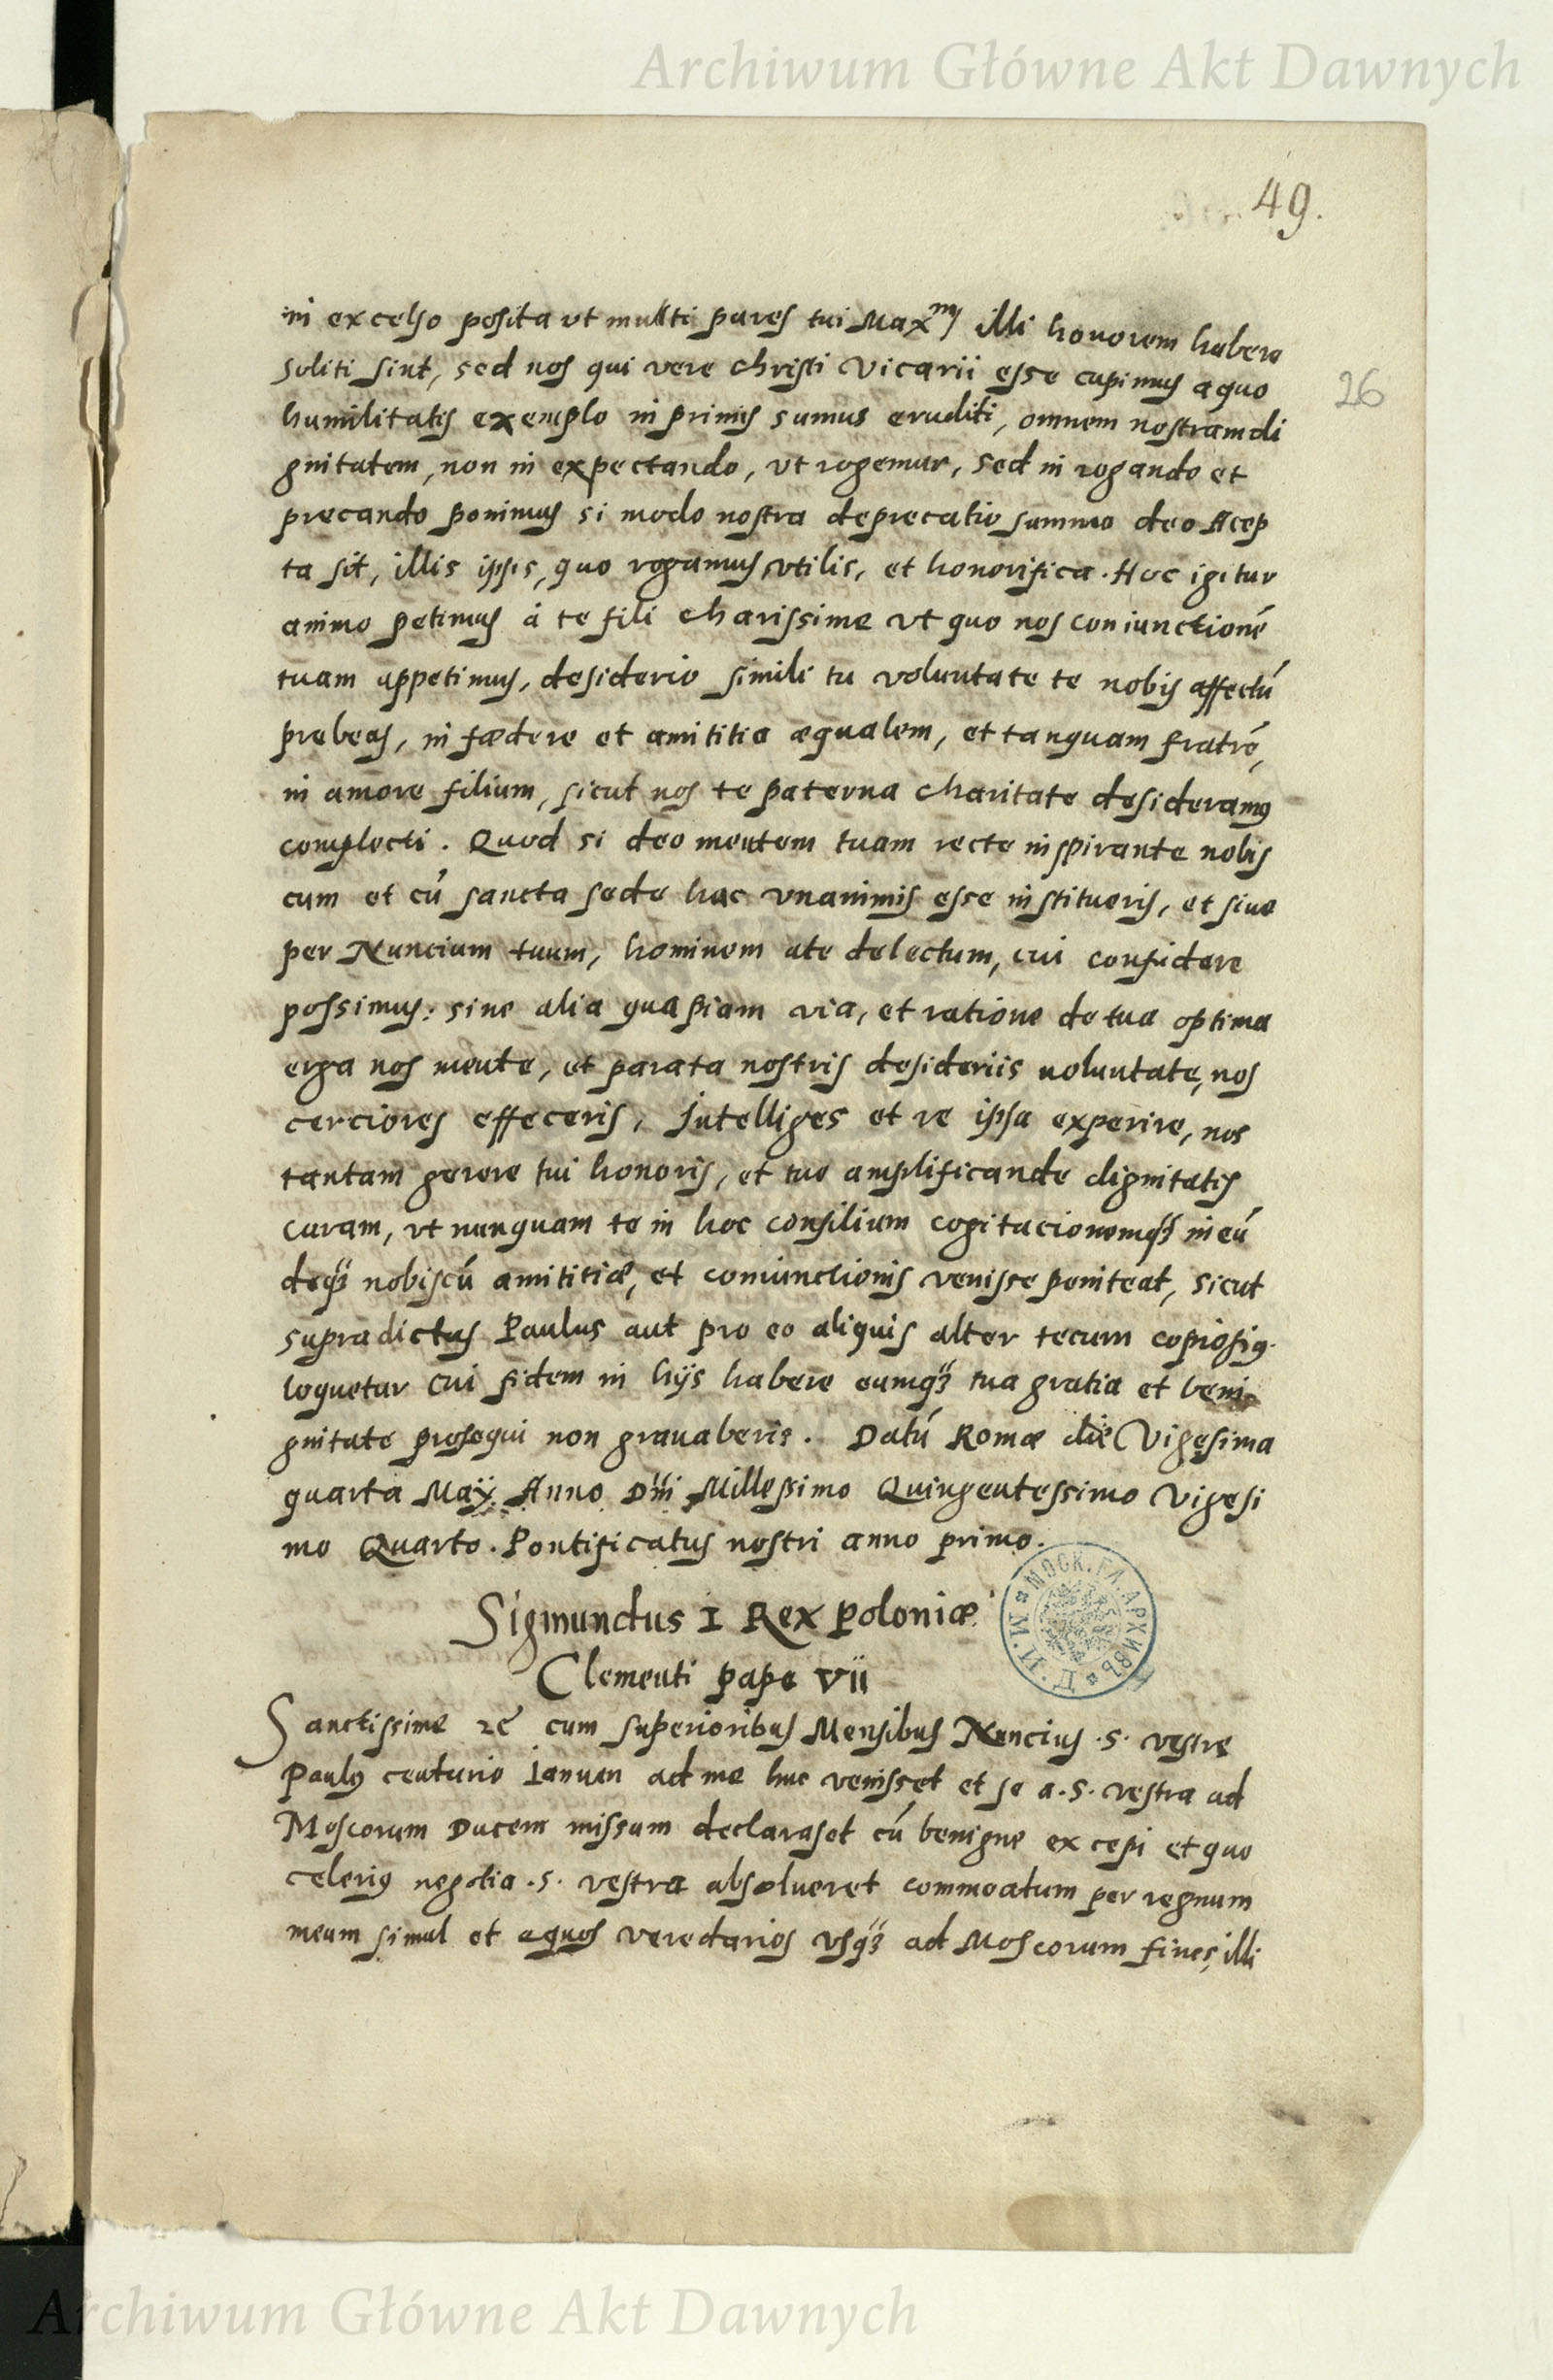 Archiwum Główne Akt Dawnych
49.
in excelso posita vt multi pares tui Max^mi illi honorem habere
soliti sint, sed nos qui vere christi vicarii esse cupimus a quo
26
humilitatis exemplo in primis sumus eruditi, omnem nostram di
gnitatem, non in expectando, vt rogemur, sed in rogando et
precando ponimus si modo nostra deprecatio summo deo Accep
ta sit, illis ipsis, quo rogamus, vtilis, et honorifica. Hoc igitur
animo petimus à te fili charissime vt quo nos coniunctionē
tuam appetimus, desiderio simili tu voluntate te nobis affectū
prebeas, in fædere et amititia æqualem, et tanquam fratrē,
in amore filium, sicut nos te paterna charitate desideramus
complecti. Quod si deo mentem tuam recte inspirante nobis
cum et cū sancta sede hac vnanimis esse institueris, et siue
per Nuncium tuum, hominem ate delectum, cui confidere
possimus: siue alia quapiam via, et ratione de tua optima
erga nos mente, et parata nostris desideriis uoluntate, nos
cerciores effeceris, Intelliges et re ipsa experire, nos
tantam gerere tui honoris, et tue amplificande dignitatis
curam, vt nunquam te in hoc consilium cogitacionemq3 in eū
deq3 nobiscū amititiæ, et coniunctionis venisse peniteat, sicut
supradictus Paulus aut pro eo aliquis alter tecum copiosius
loquetur cui fidem in hijs habere eumq3 tua gratia et beni
gnitate prosequi non grauaberis. Datū Romæ die Vigesima
quarta Maÿ Anno Dn̄i Millesimo Quingentessimo Vigesi
mo Quarto. Pontificatus nostri anno primo.
Sigmundus I Rex Poloniæ
Clementi pape VII
МОСК. ГЛ. АРХИВЪ М. И. Д.
Sanctissime rē cum superioribus Mensibus Nuncius .S. vestre
Paulus centurio Ianuen ad me huc venisset et se a .S. vestra ad
Moscorum Ducem missum declarasset cū benigne excepi et quo
celerius negotia .S. vestra absolueret commeatum per regnum
meum simul et equos veredarios vsq3 ad Moscorum fines, illi
Archiwum Główne Akt Dawnych